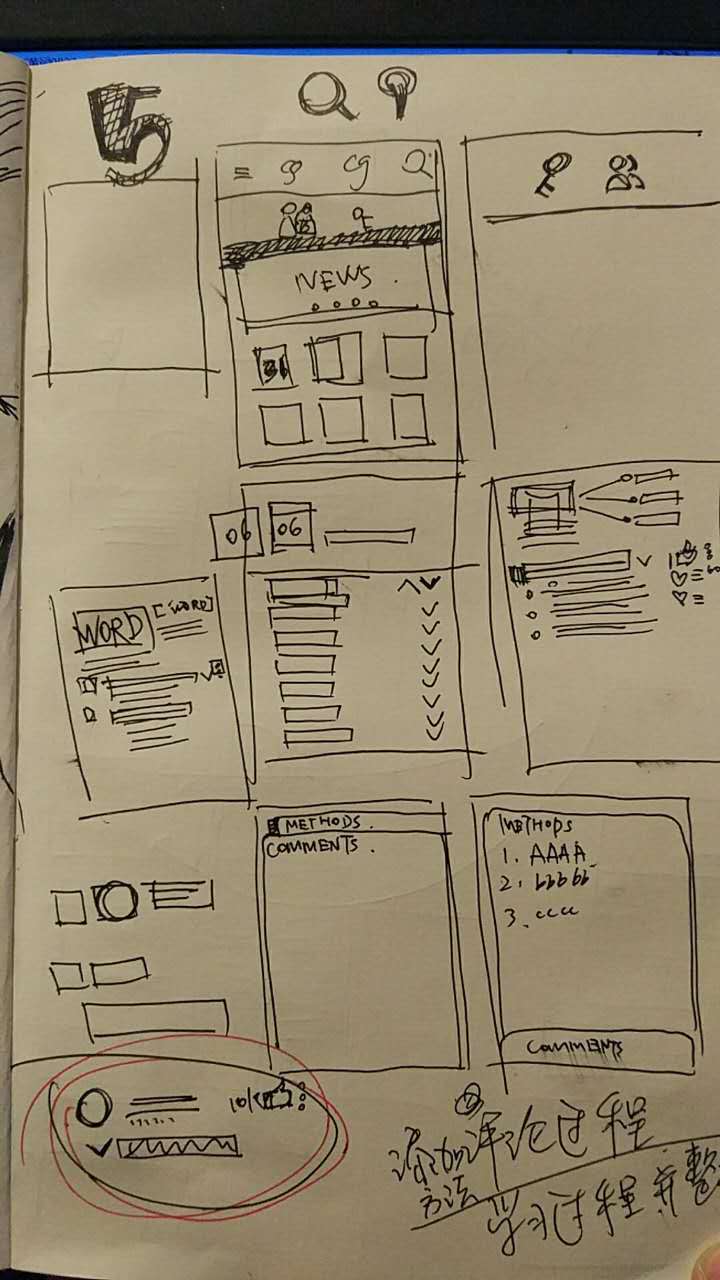 5
NEWS.
31
06 06
WORD [WORD]
METHODS.
COMMENTS.
METHODS
1. AAAA
2. bbbbb
3. cccc
COMMENTS
10K
添加评论过程
方法
学习过程并整